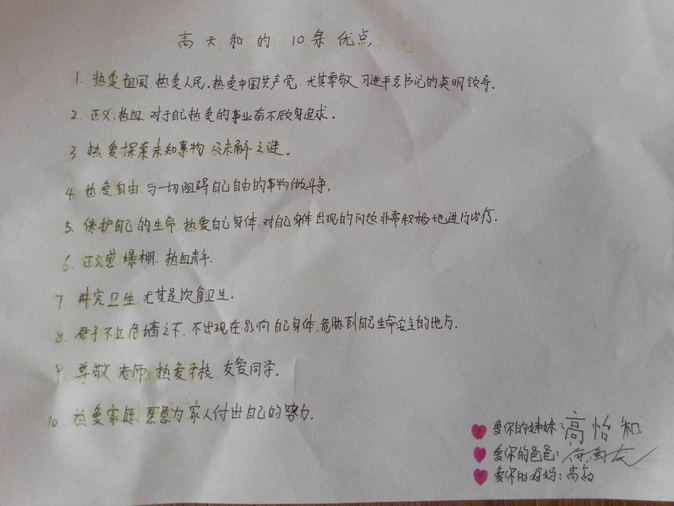 高天和的10条优点
1. 热爱祖国、热爱人民。热爱中国共产党、尤其尊敬习近平总书记的英明领导。
2. 正义、热血、对于自己热爱的事业奋不顾身追求。
3. 热爱探索未知事物及未解之谜。
4. 热爱自由、与一切阻碍自己自由的事物做斗争。
5. 保护自己的生命、热爱自己身体、对自己身体出现的问题非常积极地进行治疗。
6. 正义感爆棚、热血青年.
7. 讲究卫生、尤其是饮食卫生。
8. 君子不立危墙之下、不出现在影响自己身体、危胁到自己生命安全的地方。
9. 尊敬老师、热爱学校、友爱同学。
10. 热爱家庭、愿意为家人付出自己的努力.
爱你的妹妹:高怡和
爱你的爸爸:
爱你的妈妈: